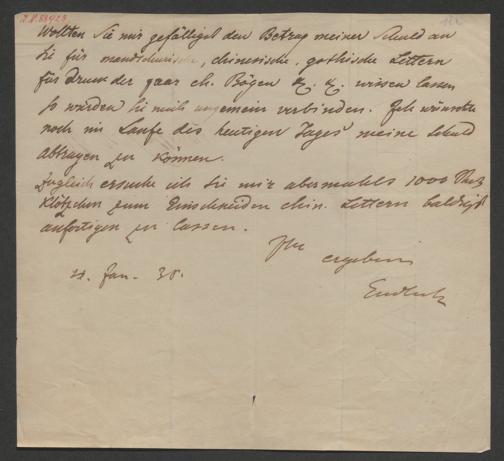 Wollten Sie mir gefälligst den Betrag meiner Schuld an
Sie für mandschurische, chinesische, gothische Lettern
für Druck der paar ch. Bögen &. &. wissen lassen
so würden Sie mich ungemein verbinden. Ich wünschte
noch im Laufe des heutigen Tages meine Schuld
abtragen zu können.
Zugleich ersuche ich Sie mir abermahls 1000
Klötzchen zum Einschneiden chin. Lettern baldigst
anfertigen zu lassen.
Ihr
ergebener
Endlicher
Jan. 38.